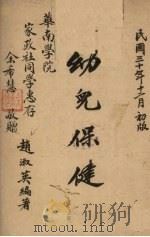 民國三十年十一月初版
幼兒保健
趙淑英編著
華南學院
家政社同學惠存
余希慧 敬贈